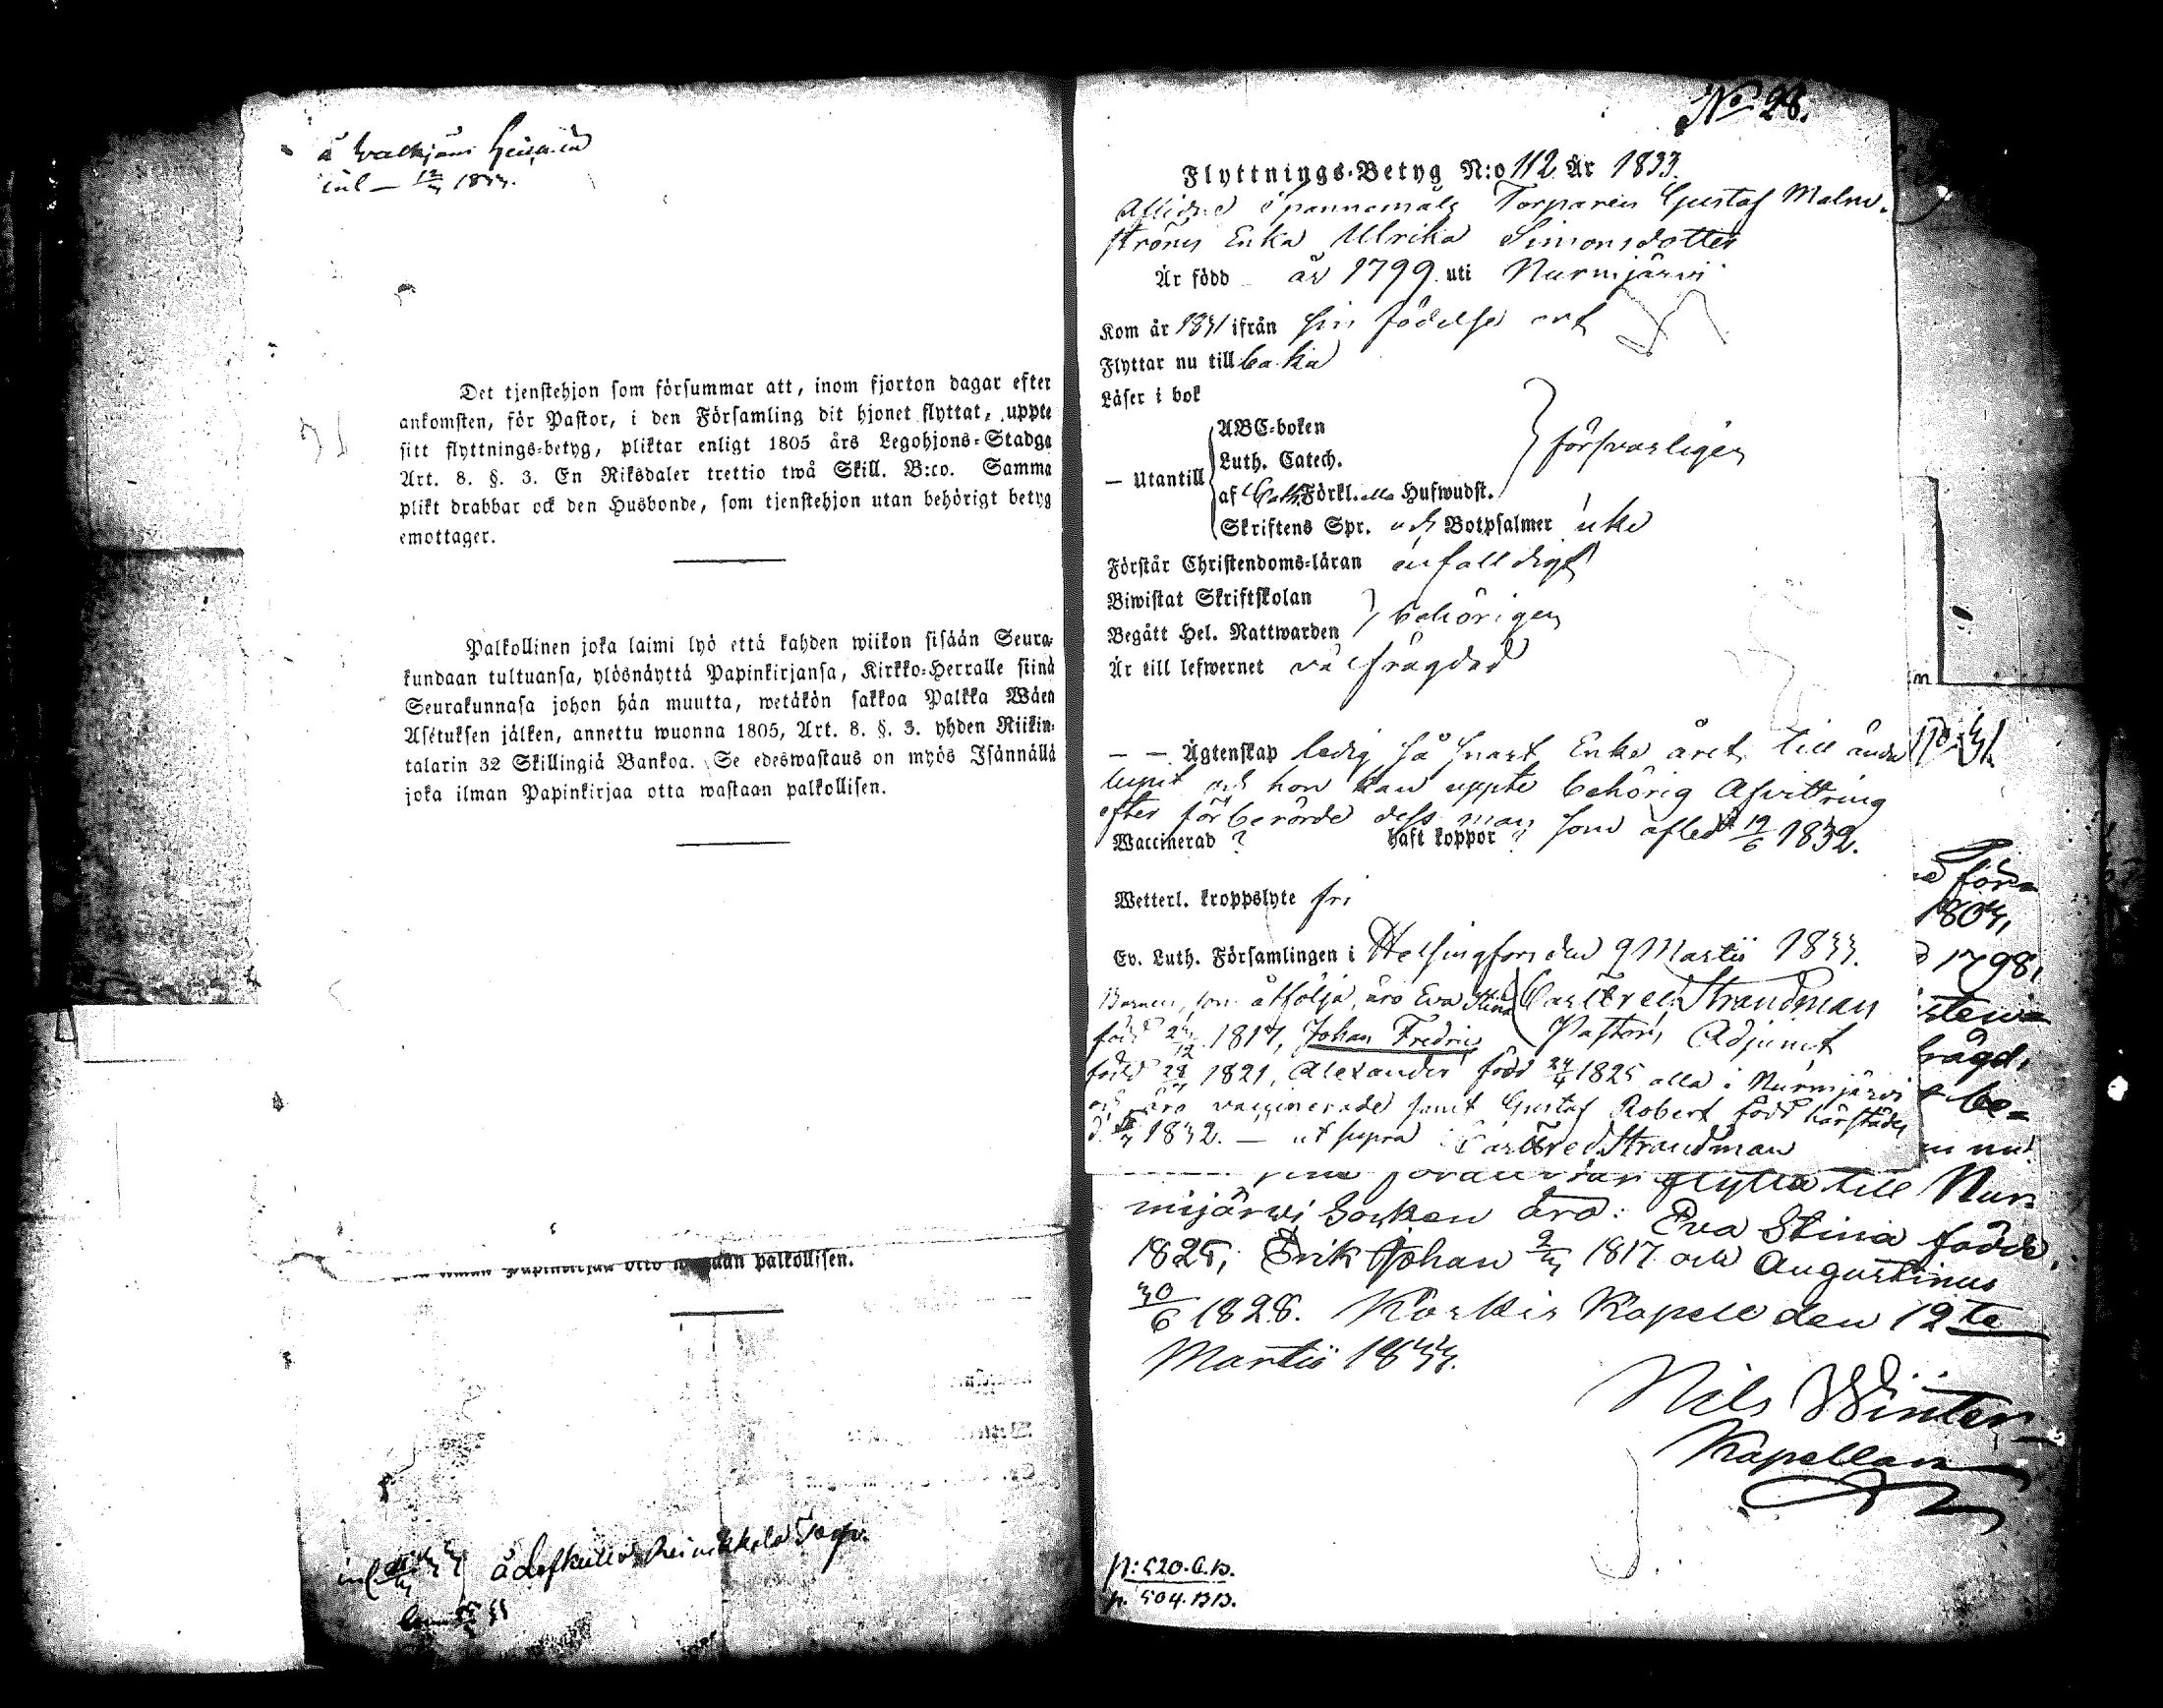 å
inl – 12/3 1833.
Det tjenstehjon som försummar att, inom fjorton dagar efter
ankomsten, för Pastor, i den Församling dit hjonet flyttat, uppte
sitt flyttnings-betyg, pliktar enligt 1805 års Legohjons-Stadga
Art. 8. §. 3. En Riksdaler trettio twå Skill. B:co. Samma
plikt drabbar ock den Husbonde, som tjenstehjon utan behörigt betyg
emottager.
Palkollinen joka laimi lyö että kahden wiikon sisään Seura-
kundaan tultuansa, ylösnäyttä Papinkirjansa, Kirkko-Herralle siinä
Seurakunnasa johon hän muutta, wetäkön sakkoa Palkka Wäen
Asétuksen jälken, annettu wuonna 1805, Art. 8. §. 3. yhden Riikin-
talarin 32 Skillingiä Bankoa. Se edeswastaus on myös Isännällä
joka ilman Papinkirjaa otta wastaan palkollisen.
palkollisen.
å
No 28.
Flyttnings-Betyg N:o 112 År 1833.
Aflidne Spannemåls Torparen Gustaf Malm-
ströms Enka Ulrika Simonsdotter
Är född år 1799. uti Nurmijärvi
Kom år 1831 ifrån sin födelse ort
Flyttar nu till baka
Läser i bok
ABC-boken
Luth. Catech.
försvarligen
– Utantill
af Förkl. Hufwudst.
Skriftens Spr. och Botpsalmer icke
Förstår Christendoms-läran enfalldigt
Biwistat Skriftskolan
behörigen
Begått Hel. Nattwarden
Är till lefwernet välfrägdad
– – Ägtenskap ledig så snart Enke året till ända
lupit och hon kan uppte behörig Afvittring
efter förberörde dess man som afled 12/6 1832.
Waccinerad ? haft koppor ?
Wetterl. kroppslyte fri
Ev. Luth. Församlingen i Helsingfors den 9 Martii 1833.
Barnen, som åtfölja, äro Eva Stina
Carl Fred. Strandman
Pastors Adjunct
född 1817, Johan Fredric
född 1821, Alexander född 24/4 1825 alla i Nurmijärvi
och äro vaccinerade samt Gustaf Robert född härstädes
1832. – ut supra Carl Fred. Strandman
1798,
be-
flytta till Nur-
mijärvi Socken äro: Eva Stina född
1825, Erik Johan 2/3 1817 och Augustinus
30/6 1828. Kärkis Kapell den 12te
Martii 1833.
Nils Winter
Kapellan
p: 520. C.B.
p. 504. B.B.